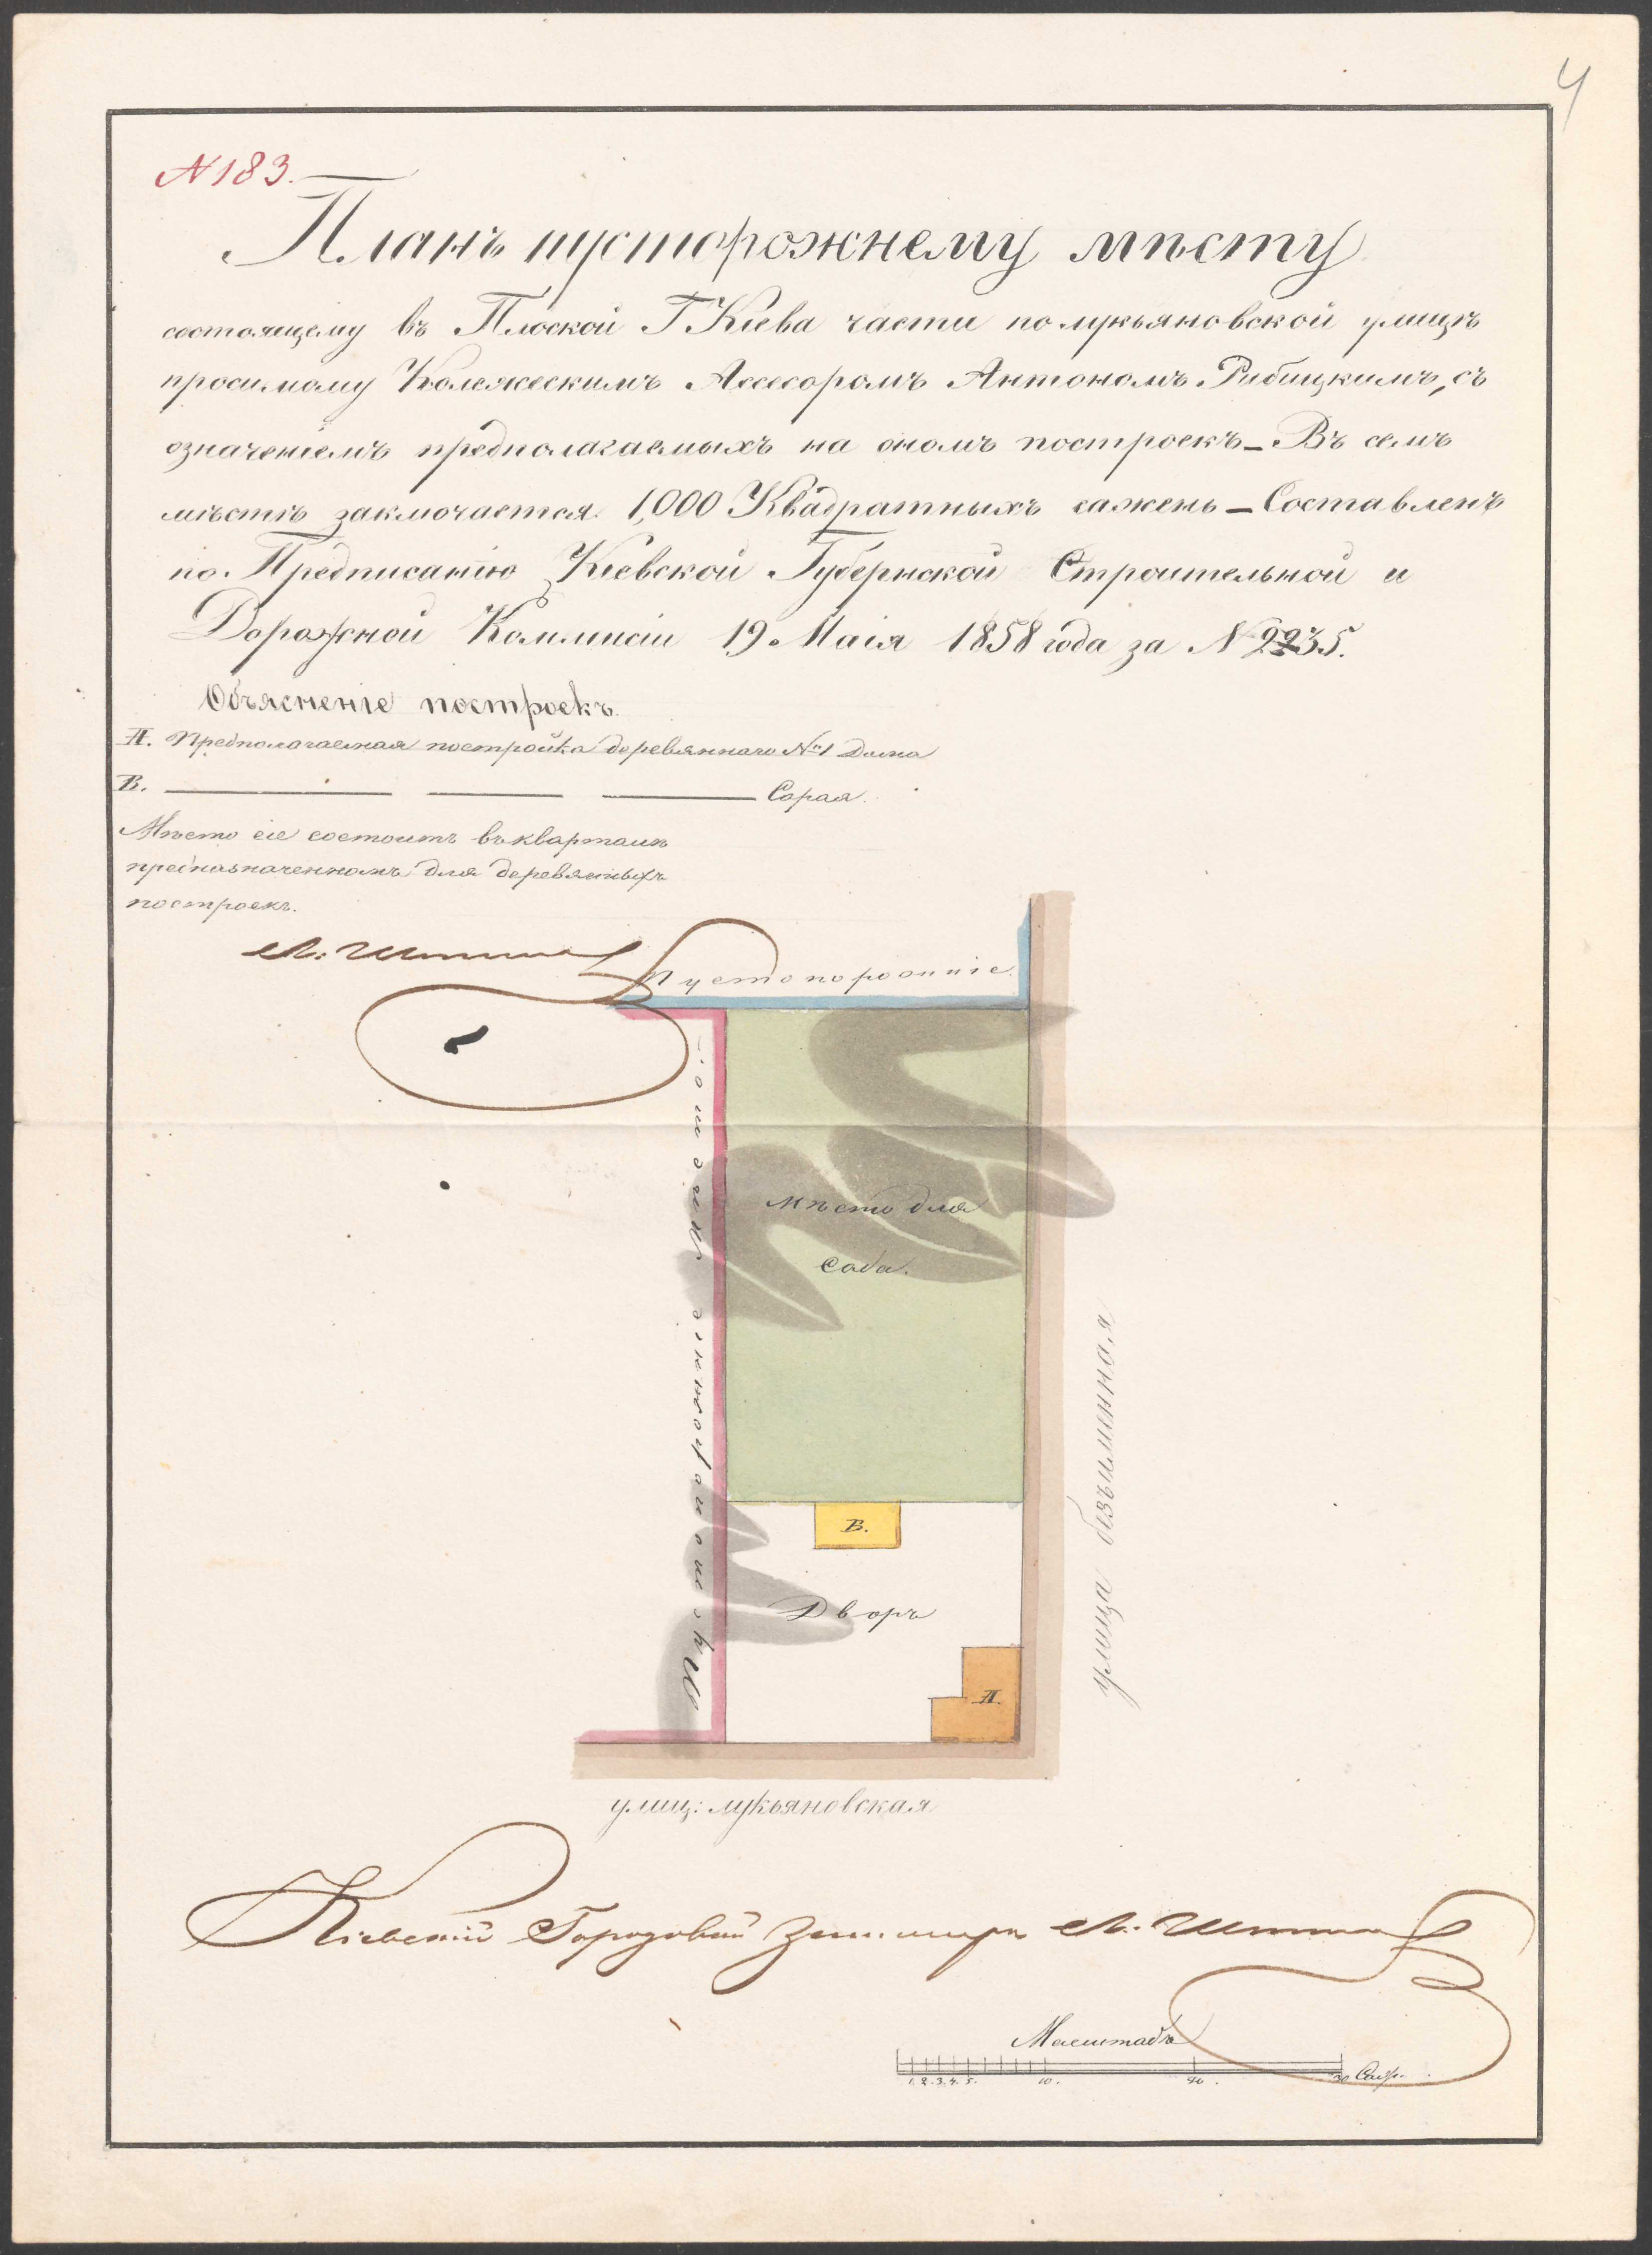 4
N 183.
Планъ пусторожнему мѣсту
состоящему въ Плоской Г. Кіева части по лукьяновской улицѣ
просимому Колежескимъ Ассесоромъ Антономъ Рыбицкимъ, съ
означеніемъ предполагаемыхъ на ономъ построекъ – Въ семъ
мѣстѣ заключается 1,000 Квадратныхъ сажень – Составленъ
по Предписанію Кіевской Губернской Строительной и
Дорожной Коммисіи 19 Маія 1858 года за N 2235.
Объясненіе построекъ.
А. Предполагаемая постройка деревяннаго № 1 Дома
В. Сарая.
Мѣсто сіе состоитъ въ кварталѣ
предназначенномъ для деревянныхъ
построекъ.
Пустопорожніе
Пустопорожніе мѣсто.
мѣсто для
сада.
В.
Дворъ
А.
улица безъименная
улиц: лукьяновская
Кіевскій Городовой
Масштабъ
1. 2. 3. 4. 5. 10. 20. 30 Саж.